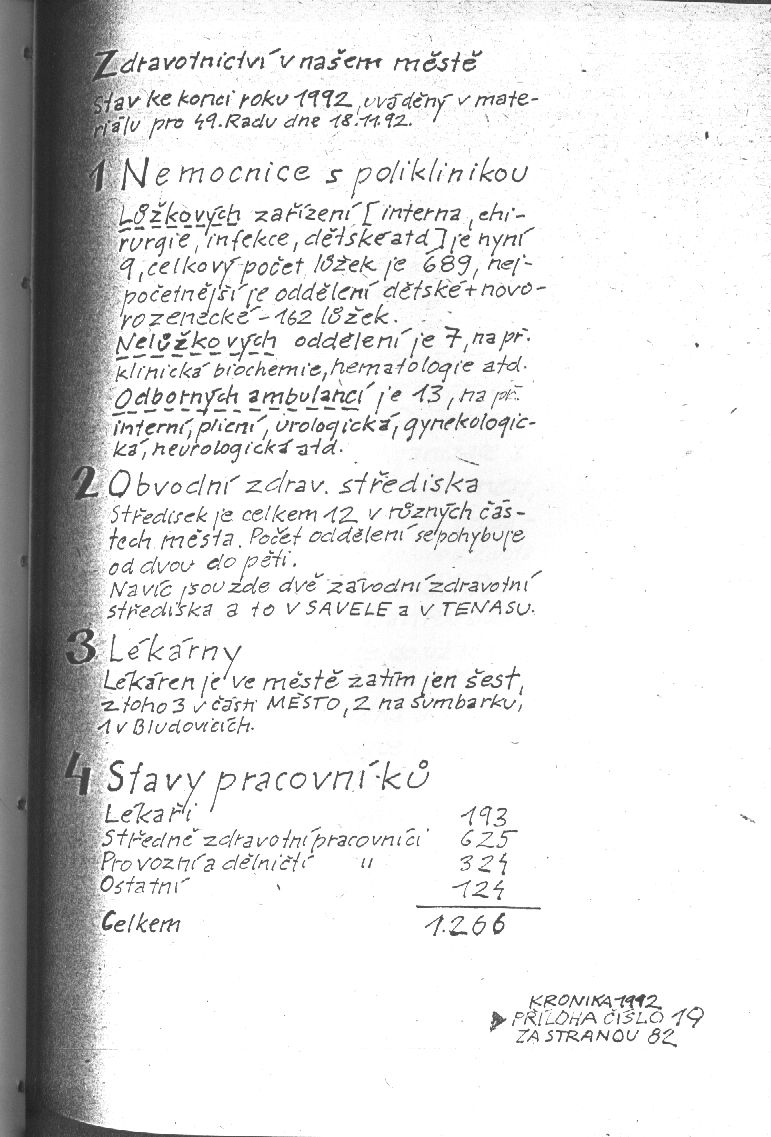 Zdravotnictví v našem městě
stav ke konci roku 1992, uváděný v mate-
riálu pro 49. Radu dne 18.11.92.
1 Nemocnice s poliklinikou
Lůžkových zařízení [interna, chi-
rurgie, infekce, dětské atd] je nyní
9, celkový počet lůžek je 689, nej-
početnější je oddělení dětské + novo-
rozenecké - 162 lůžek.
Nelůžkových oddělení je 7, na př.
klinická biochemie, hematologie atd.
Odborných ambulancí je 13, na př.
interní, plicní, urologická, gynekologic-
ká, neurologická atd.
2 Obvodní zdrav. střediska
Středisek je celkem 12 v různých čás-
tech města. Počet oddělení se pohybuje
od dvou do pěti.
Navíc jsou zde dvě závodní zdravotní
střediska a to v SAVELE a v TENASU.
3 Lékárny
Lékáren je ve městě zatím jen šest,
z toho 3 v části MĚSTO, 2 na Šumbarku,
1 v Bludovicích.
4 Stavy pracovníků
Lékaři 193
Středně zdravotní pracovníci 625
Provozní a dělničtí " 324
Ostatní 124
Celkem 1.266
KRONIKA 1992
PŘÍLOHA ČÍSLO 19
ZA STRANOU 82